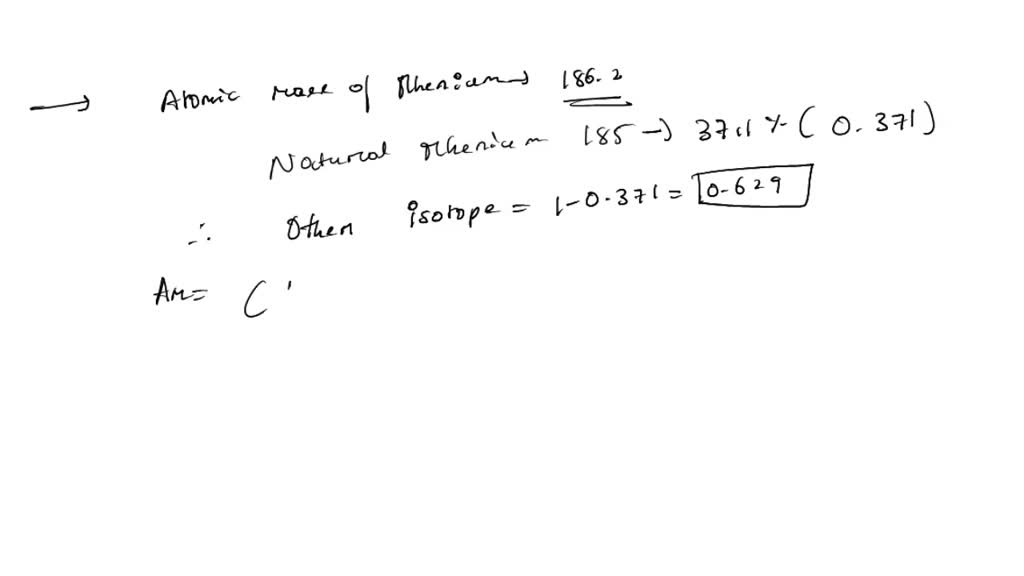 → Atomic mass of Rhenium → 186.2
Natural Rhenium 185 → 37.1 % ( 0.371 )
∴ Other isotope = 1-0.371 = 0.629
Ar= (